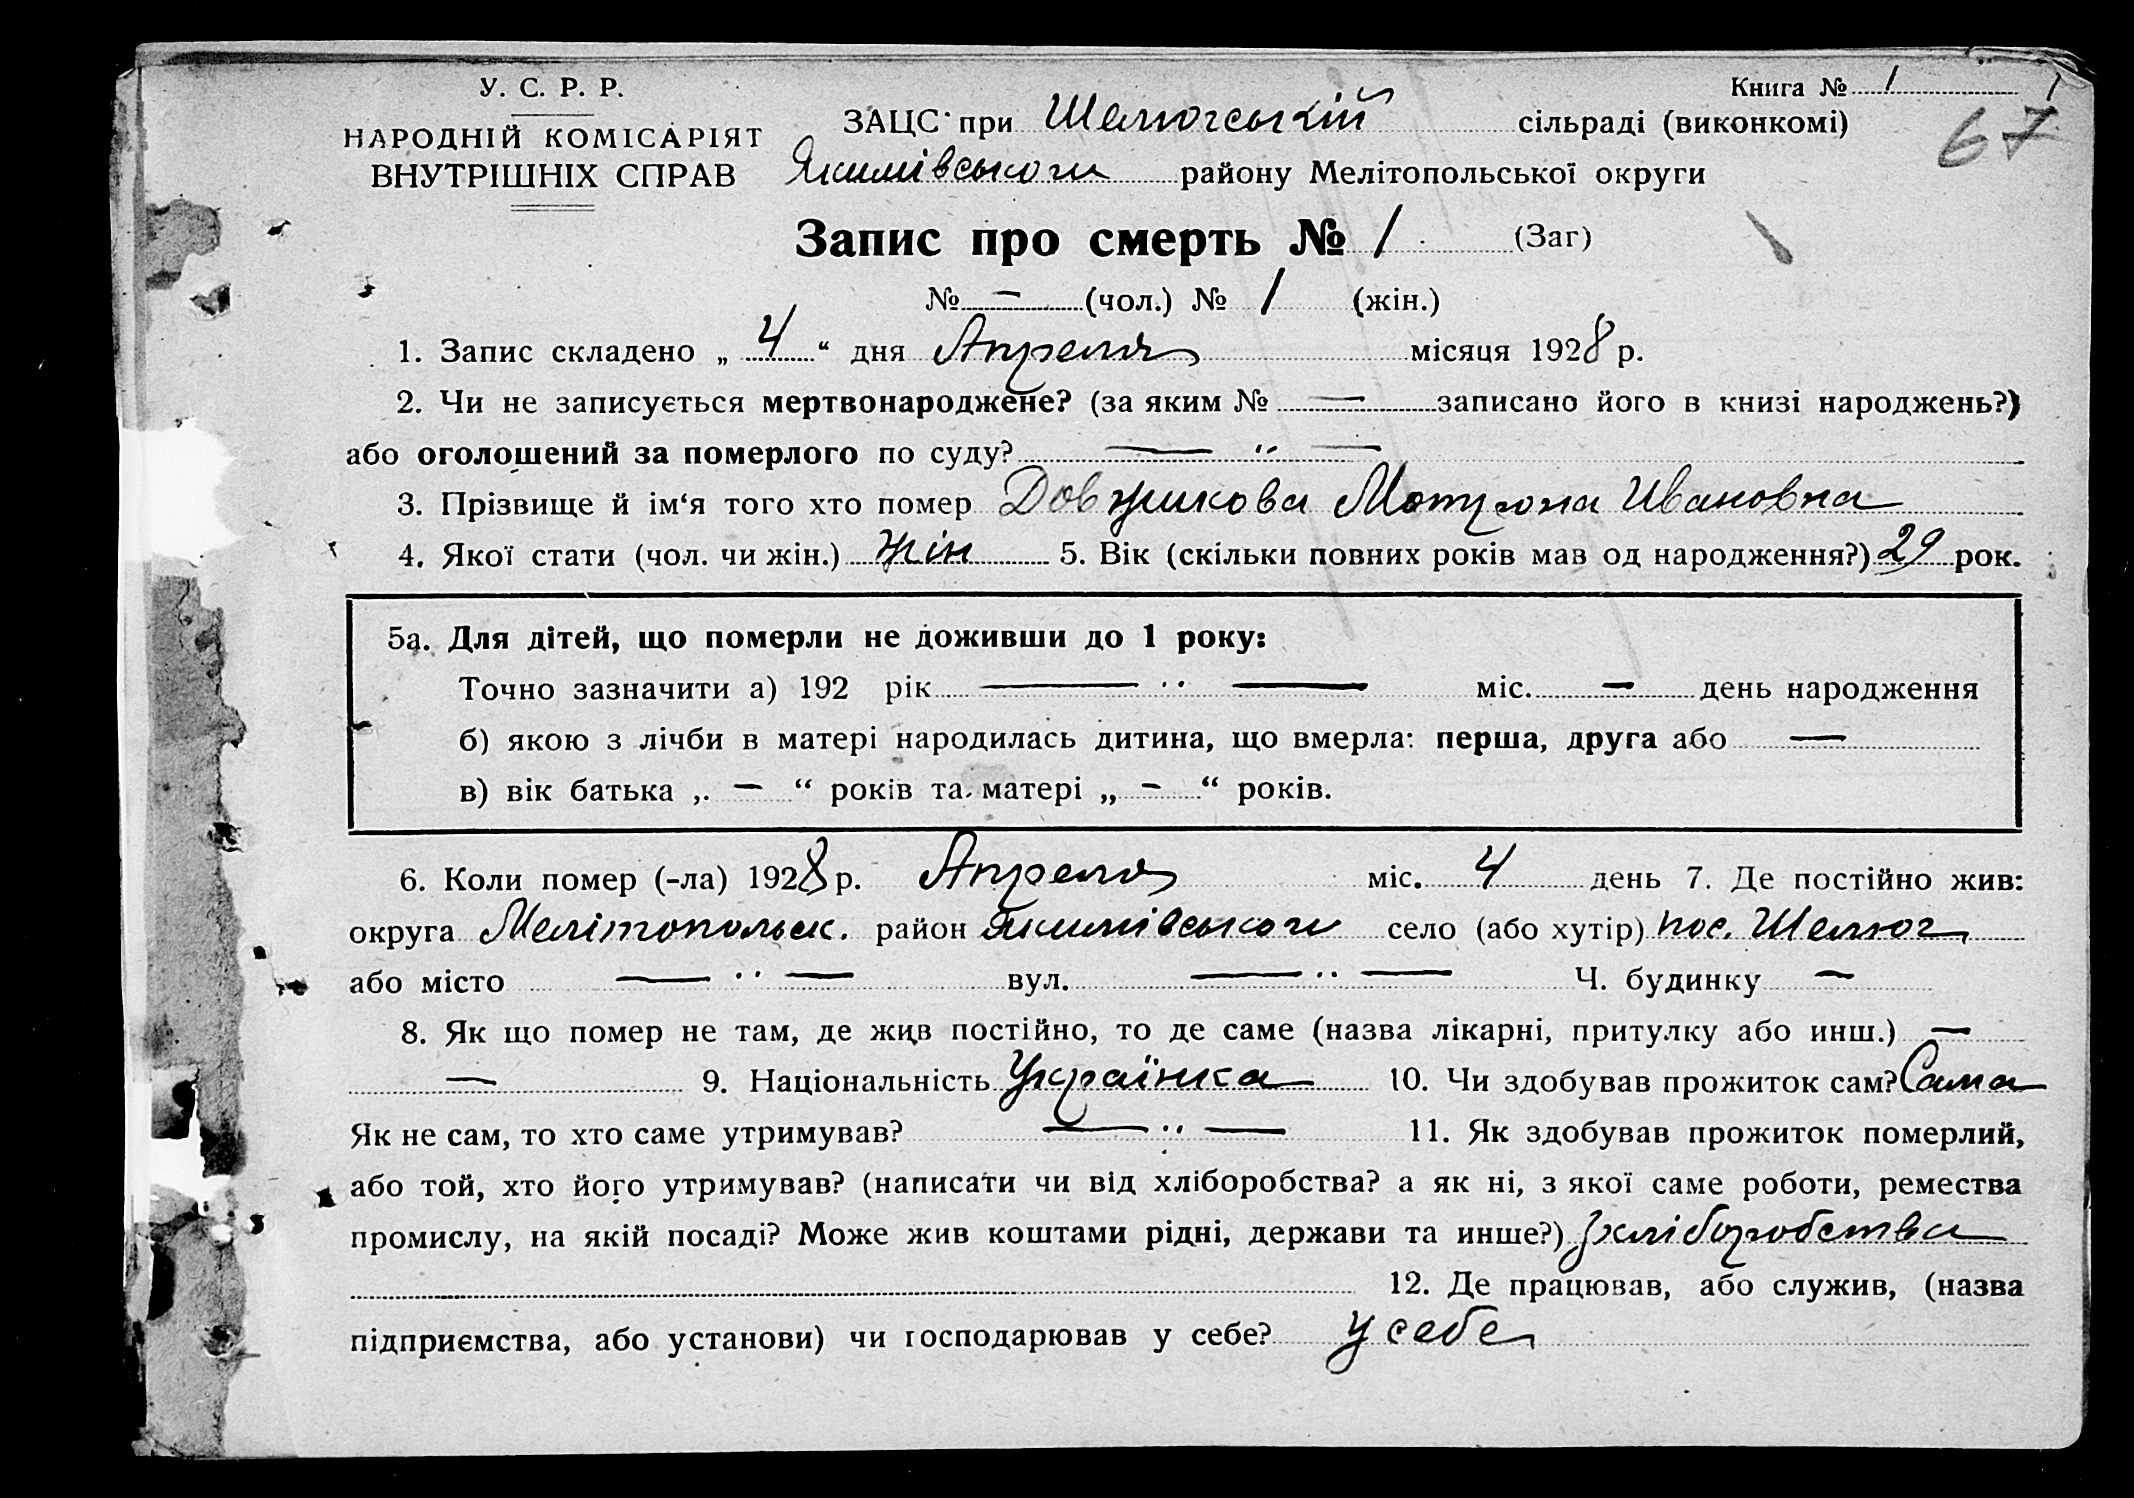 У. С. Р. Р.
НАРОДНІЙ КОМІСАРІЯТ
ВНУТРІШНІХ СПРАВ
Книга № 1
1
67
ЗАЦС при Шелюгській сільраді (виконкомі)
Якимівського району Мелітопольської округи
Запис про смерть № 1 (Заг)
№ — (чол.) № 1 (жін.)
1. Запис складено „ 4 “ дня Апреля місяця 1928 р.
2. Чи не записується мертвонароджене? (за яким № — записано його в книзі народжень?)
або оголошений за померлого по суду? — ״ —
3. Прізвище й ім‘я того хто помер Довжикова Мотрона Ивановна
4. Якої стати (чол. чи жін.) жін 5. Вік (скільки повних років мав од народження?) 29 рок.
5а. Для дітей, що померли не доживши до 1 року:
Точно зазначити а) 192 рік — ״ — міс. — день народження
б) якою з лічби в матері народилась дитина, що вмерла: перша, друга або —
в) вік батька „ — “ років та матері „ — “ років.
6. Коли помер (-ла) 1928 р. Апреля міс. 4 день 7. Де постійно жив:
округа Мелітопольск. район Якимівського село (або хутір) пос. Шелюг
або місто — ״ — вул. — ״ — Ч. будинку —
8. Як що помер не там, де жив постійно, то де саме (назва лікарні, притулку або инш.) —
— 9. Національність Українка 10. Чи здобував прожиток сам? Сама
Як не сам, то хто саме утримував? — ״ — 11. Як здобував прожиток померлий,
або той, хто його утримував? (написати чи від хліборобства? а як ні, з якої саме роботи, ремества
промислу, на якій посаді? Може жив коштами рідні, держави та инше?) хліборобства
12. Де працював, або служив, (назва
підприємства, або установи) чи господарював у себе? у себе